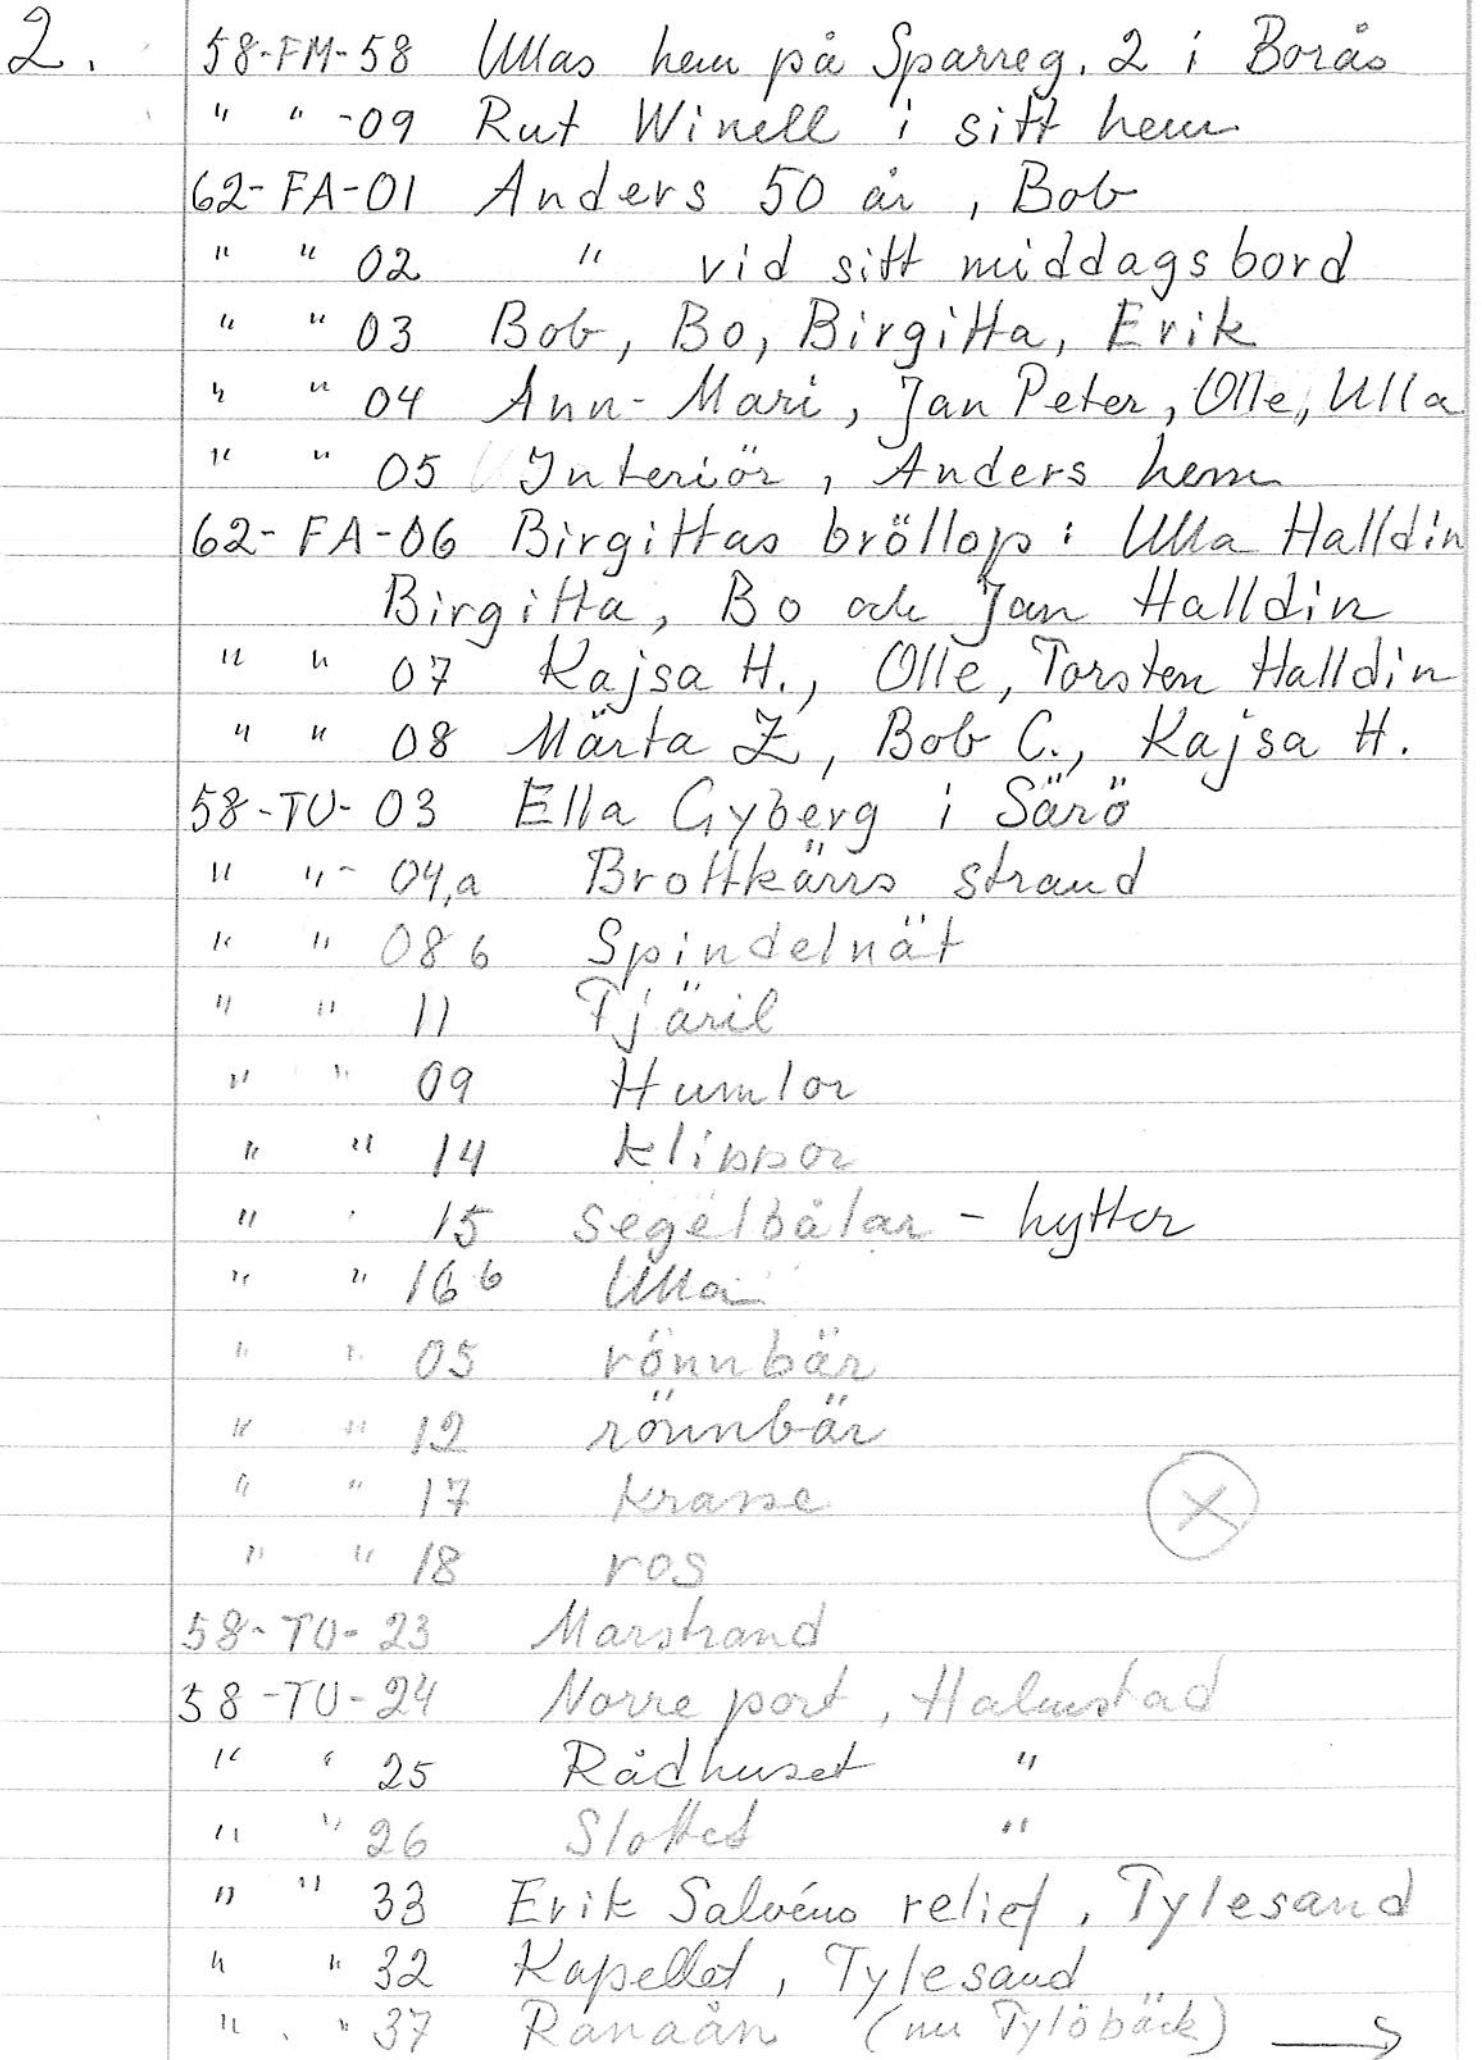 2.
58-FM-58 Ullas hem på Sparreg. 2 i Borås
" " -09 Rut Winell i sitt hem
62-FA-01 Anders 50 år, Bob
" " 02 " vid sitt middagsbord
" " 03 Bob, Bo, Birgitta, Erik
" " 04 Ann-Mari, Jan Peter, Olle, Ulla
" " 05 Interiör, Anders hem
62-FA-06 Birgittas bröllop: Ulla Halldin
Birgitta, Bo och Jan Halldin
" " 07 Kajsa H., Olle, Torsten Halldin
" " 08 Märta Z, Bob C., Kajsa H.
58-TU-03 Ella Gyberg i Särö
" "- 04,a Brottkärrs strand
" " 08 b Spindelnät
" " 11 Fjäril
" " 09 Humlor
" " 14 klippor
" " 15 segelbåtar - hyttor
" " 16 b Ulla
" " 05 rönnbär
" " 12 rönnbär
" " 17 krasse
" " 18 ros
58-TU-23 Marstrand
58-TU-24 Norre port, Halmstad
" " 25 Rådhuset "
" " 26 Slottet "
" " 33 Erik Salvéns relief, Tylesand
" " 32 Kapellet, Tylesand
" " 37 Ranaån (nu Tylöbäck) →